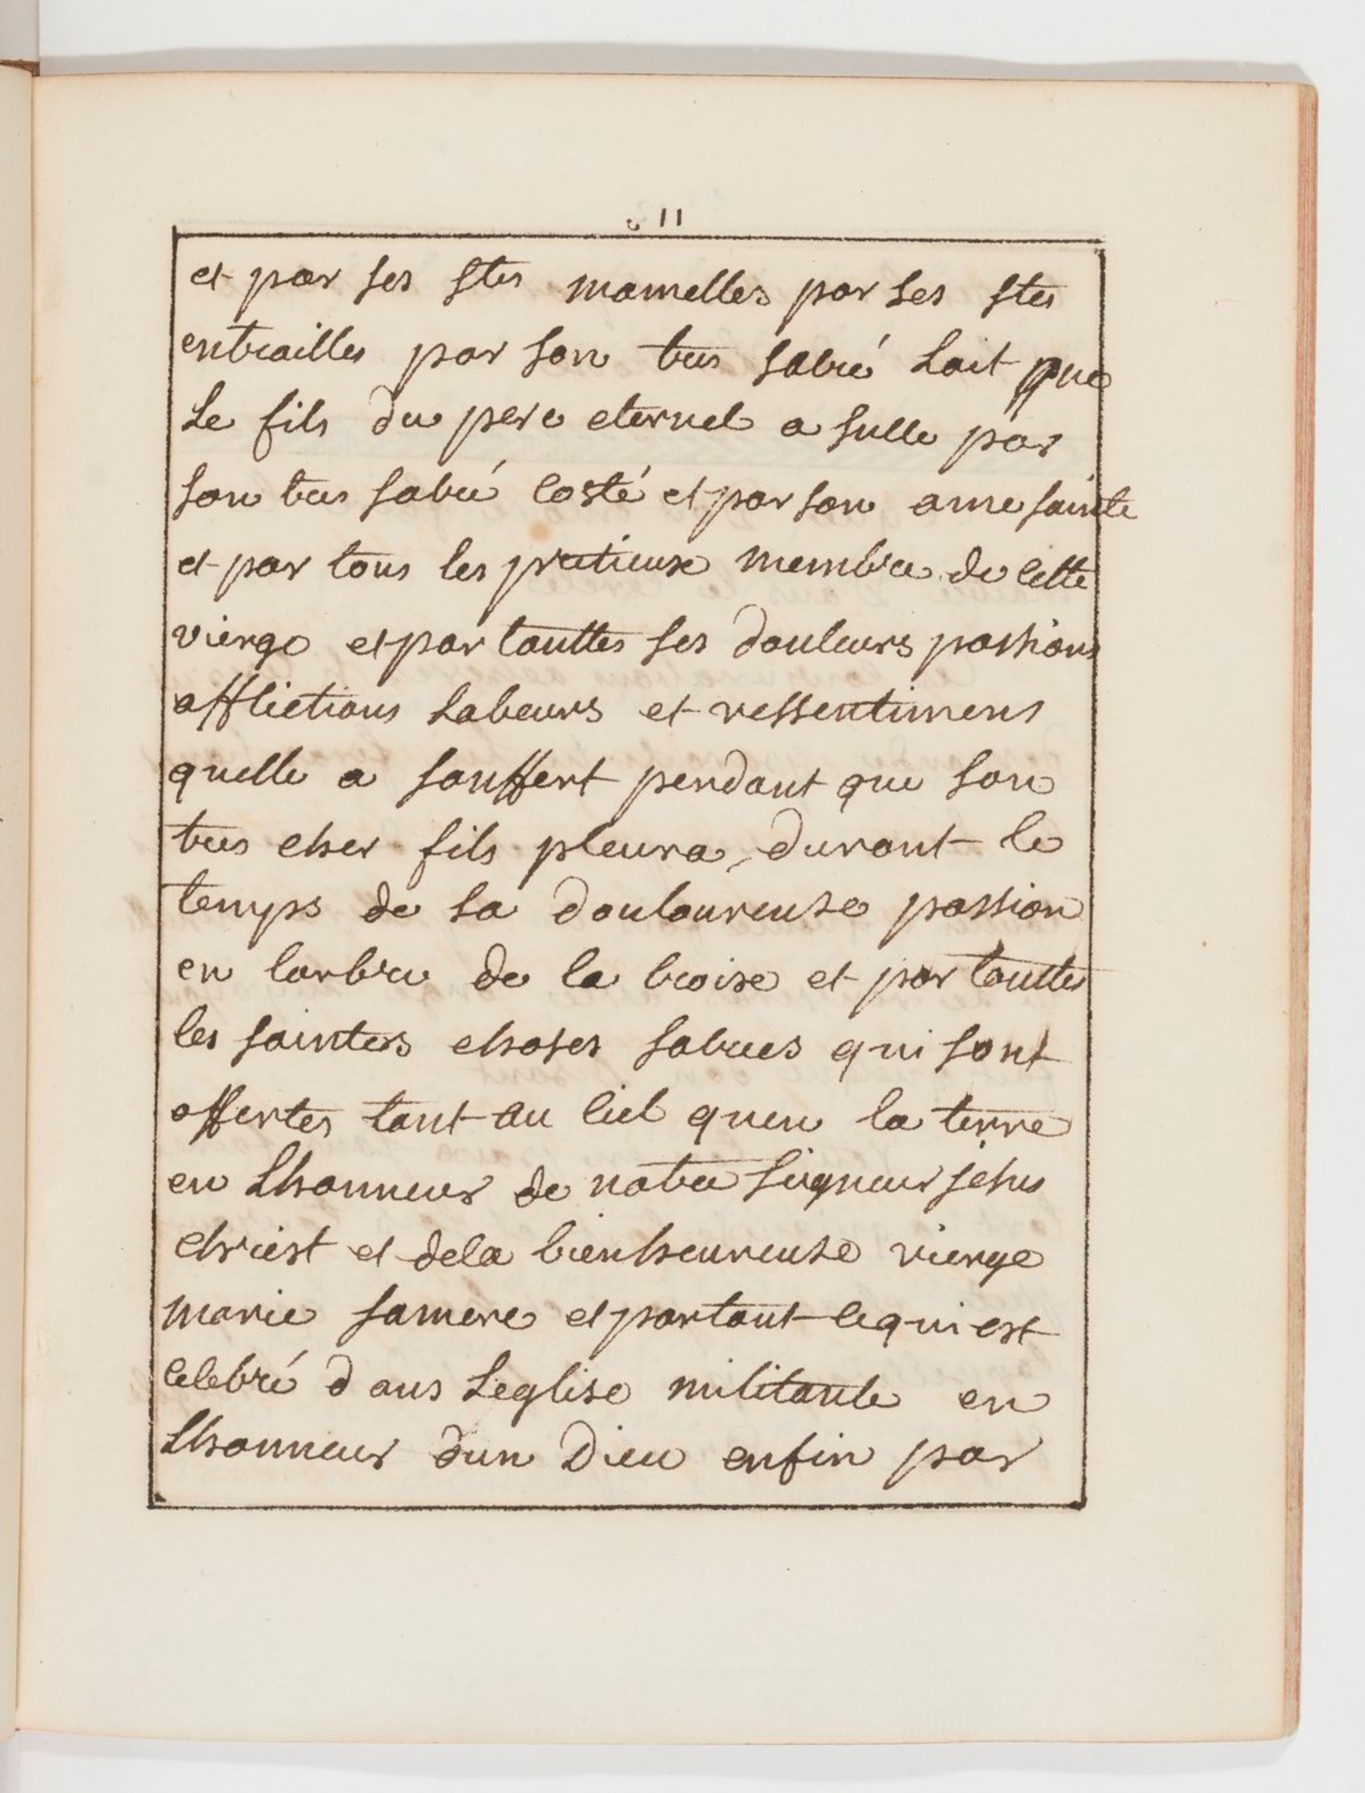 11
et par ses stes mamelles par ses stes
entrailles par son tres sacré Lait que
Le fils du pere eternel a sulle par
son tres sacré costé et par son ame sainte
et par tous les pretieux membre de cette
vierge et par touttes ses douleurs passions
afflictions Labeurs et ressentimens
quelle a souffert pendant que son
tres cher fils pleura durant le
temps de sa douloureuse passion
en larbre de la croixe et par touttes
les saintes choses sacrees qui sont
offertes tant au ciel quen la terre
en Lhonneur de notre seigneur jesus
christ et dela bienheureuse vierge
marie samere et partout cequi est
celebré dans Leglise militante en
Lhonneur dun Dieu enfin par